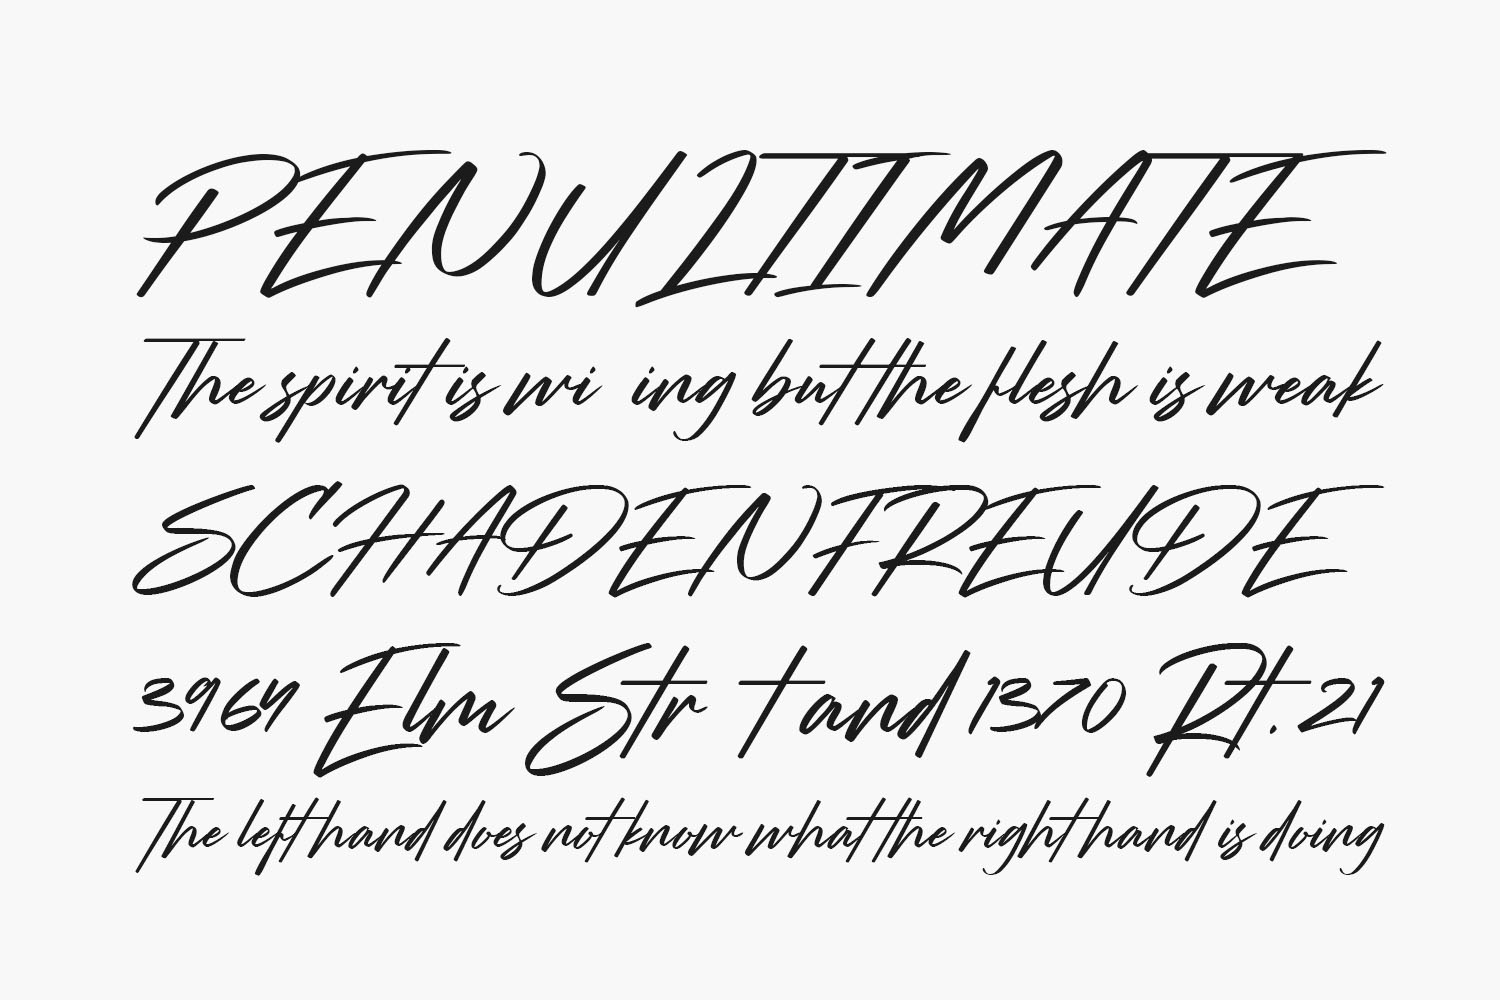 PENULTIMATE
The spirit is wi  ing but the flesh is weak
SCHADENFREUDE
3964 Elm Str  t and 1370 Rt. 21
The left hand does not know what the right hand is doing